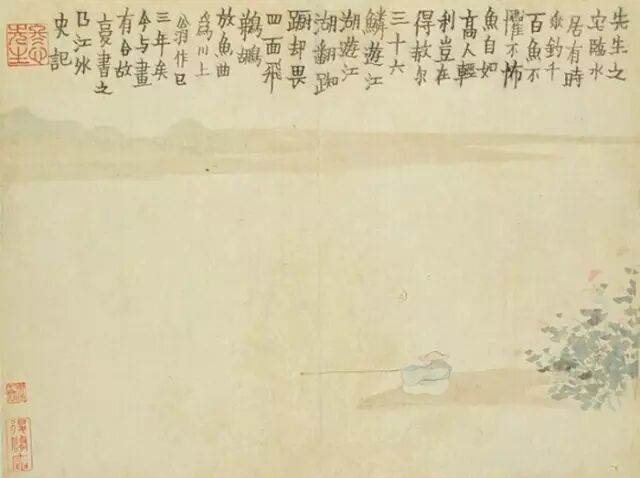 先生之
宅臨水
居有時
垂釣千
百魚不
懼不怖
魚自如
高人輕
利豈在
得赦尔
三十六
鱗遊江
湖遊江
湖翻踟
蹰却畏
四面飛
鵜鶘
放魚曲
為川上
翁作已
三年矣
今与畫
有合故
書之
曲江外
史記
冬心先生